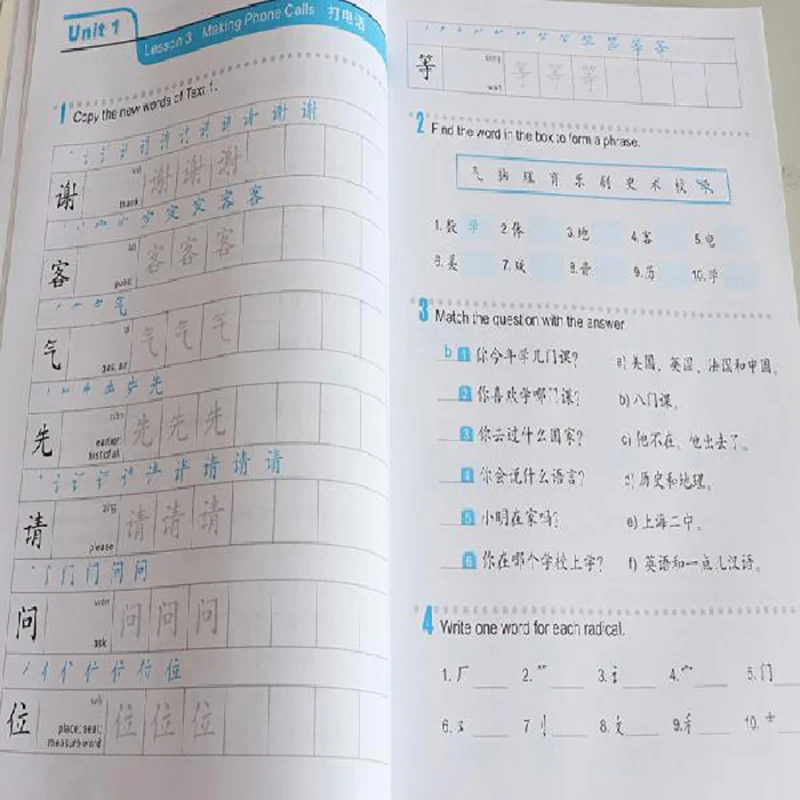 Unit 1
Lesson 3 Making Phone Calls 打电话
1 Copy the new words of Text 1.
谢 谢
谢 谢 谢 谢
thank
客 客
客 客 客 客
guest
气
气 气 气 气
gas, air
先
先 先 先 先
earlier
first of all
请 请 请
请 请 请 请
please
问 问
问 问 问 问
ask
位
位 位 位 位
place; seat;
measure word
等 等
等 等 等 等
wait
2 Find the word in the box to form a phrase.
气 理 育 乐 剧 史 术 校
1. 数 学 2. 体 3. 地 4. 客 5. 电
6. 美 7. 8. 音 9. 历 10. 学
3 Match the question with the answer.
b 1 你今年学几门课? a) 美国、英国、法国和中国。
2 你喜欢学哪门课? b) 八门课。
3 你去过什么国家? c) 他不在,他出去了。
4 你会说什么语言? d) 历史和地理。
5 小明在家吗? e) 上海二中。
6 你在哪个学校上学? f) 英语和一点儿汉语。
4 Write one word for each radical.
1. 厂 2. 3. 讠 4. 5. 门
6. 7. 刂 8. 9. 10.